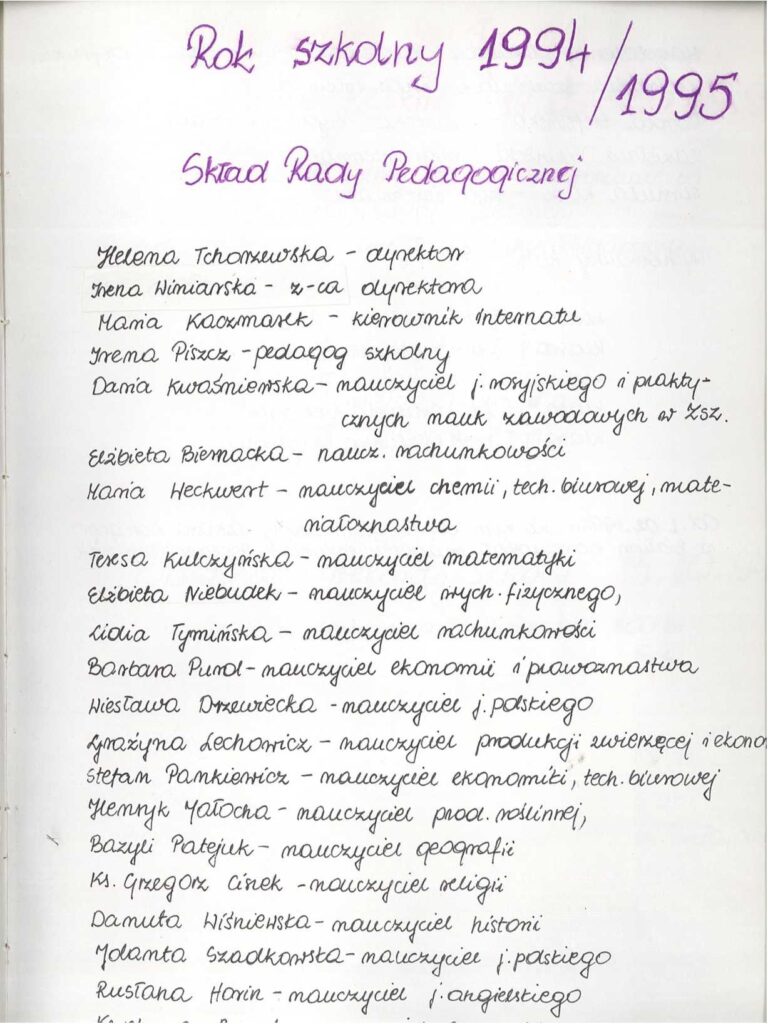 Rok szkolny 1994/1995
Skład Rady Pedagogicznej
Helena Tchorzewska - dyrektor
Irena Winiarska - z-ca dyrektora
Maria Kaczmarek - kierownik internatu
Irena Piszcz - pedagog szkolny
Daria Kwaśniewska - nauczyciel j. rosyjskiego i prakty-
cznych nauk zawodowych w Zsz.
Elżbieta Biernacka - naucz. rachunkowości
Maria Heckwert - nauczyciel chemii, tech. biurowej, mate-
riałoznastwa
Teresa Kulczyńska - nauczyciel matematyki
Elżbieta Niebudek - nauczyciel wych. fizycznego,
Lidia Tymińska - nauczyciel rachunkowości
Barbara Purol - nauczyciel ekonomii i prawoznastwa
Wiesława Drzewiecka - nauczyciel j. polskiego
Grażyna Lechowicz - nauczyciel produkcji zwierzęcej i ekono
Stefan Pankiewicz - nauczyciel ekonomiki, tech. biurowej
Henryk Małocha - nauczyciel prod. roślinnej,
Bazyli Patejuk - nauczyciel geografii
Ks. Grzegorz Cisek - nauczyciel religii
Danuta Wiśniewska - nauczyciel historii
Jolanta Szadkowska - nauczyciel j. polskiego
Rusłana Horin - nauczyciel j. angielskiego